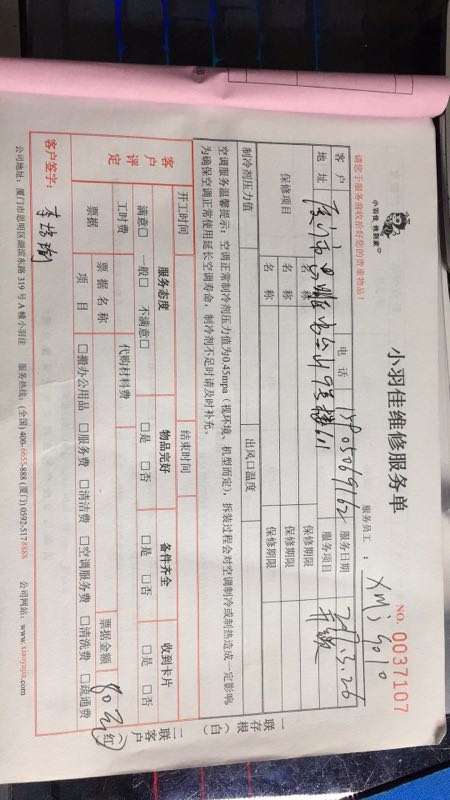 小羽佳 我到家®
小羽佳维修服务单
NO. 0037107
请您于服务前收拾好您的贵重物品!
服务员工:
客户
电话
服务日期
地址
服务项目
保修项目
名称
保修期限
名称
保修期限
名称
保修期限
制冷剂压力值
出风口温度
空调服务温馨提示:空调正常制冷剂压力值为0.45mpa(视环境、机型而定),拆装过程会对空调制冷或制热造成一定影响
为确保空调正常使用延长空调寿命,制冷剂不足时请及时补充。
开工时间
结束时间
客户评定
服务态度
物品完好
备件齐全
收到卡片
满意□ 一般□ 不满意□
□是 □否
□是 □否
□是 □否
工时费
代购材料费
票据
票据名称
票据金额
80元
项目
□搬办公用品 □服务费 □清洁费 □空调服务费 □清洗费 □疏通费
一联存根(白)
二联客户(红)
客户签字:
公司地址:厦门市思明区湖滨东路319号A幢小羽佳 服务热线:(全国)400-6655-888 (厦门)0592-5178888 公司网站:www.xiaoyujia.com